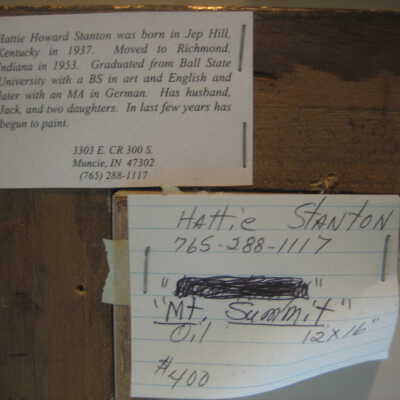 Hattie Howard Stanton was born in Jep Hill,
Kentucky in 1937. Moved to Richmond,
Indiana in 1953. Graduated from Ball State
University with a BS in art and English and
later with an MA in German. Has husband,
Jack, and two daughters. In last few years has
begun to paint.
3303 E. CR 300 S.
Muncie, IN 47302
(765) 288-1117
HATTIE STANTON
765-288-1117
" "
"Mt. Summit"
Oil 12"X16"
$400